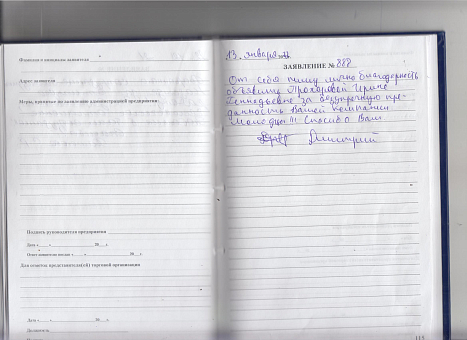 Фамилия и инициалы заявителя
Адрес заявителя
Меры, принятые по заявлению администрацией предприятия:
Подпись руководителя предприятия
Дата « » 20 г.
Ответ заявителю послан « » 20 г.
Для отметок представителя(ей) торговой организации
Дата « » 20 г.
13. января
ЗАЯВЛЕНИЕ № 888
От себя пишу лично благодарность
объявить Прохоровой Ирине
Геннадьевне за безупречную пре-
данность Вашей компании
Молодцы!!! Спасибо Вам.
Дмитрий